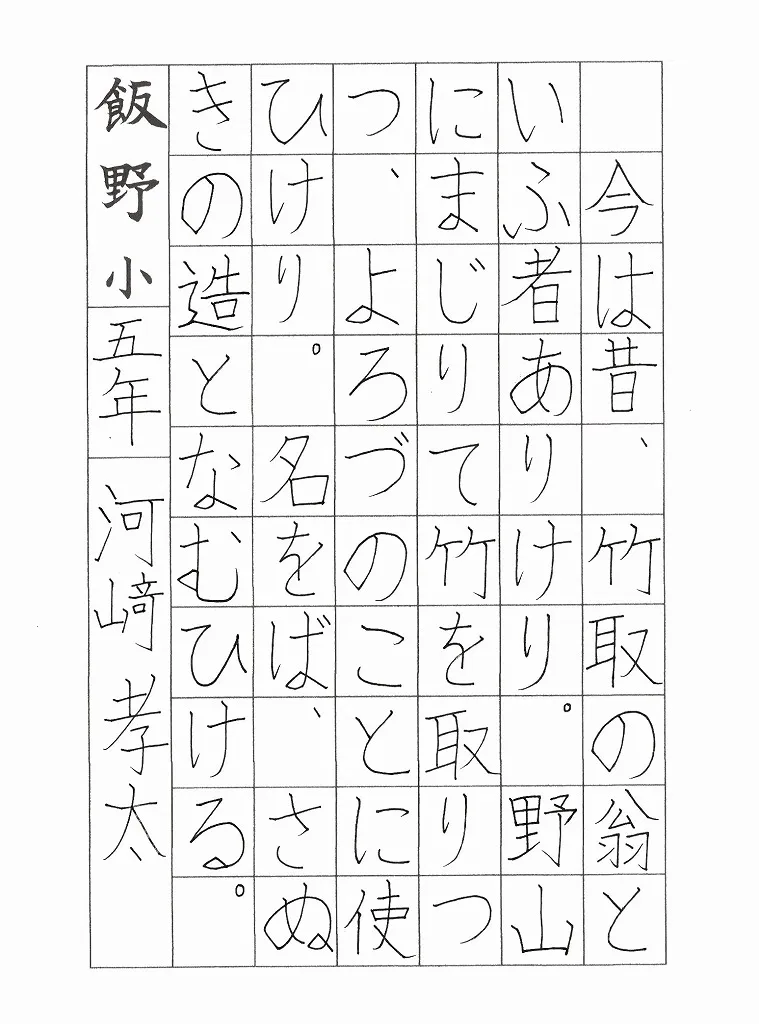 今は昔、竹取の翁と
いふ者ありけり。野山
にまじりて竹を取りつ
つ、よろづのことに使
ひけり。名をば、さぬ
きの造となむひける。
飯野小五年 河﨑孝太